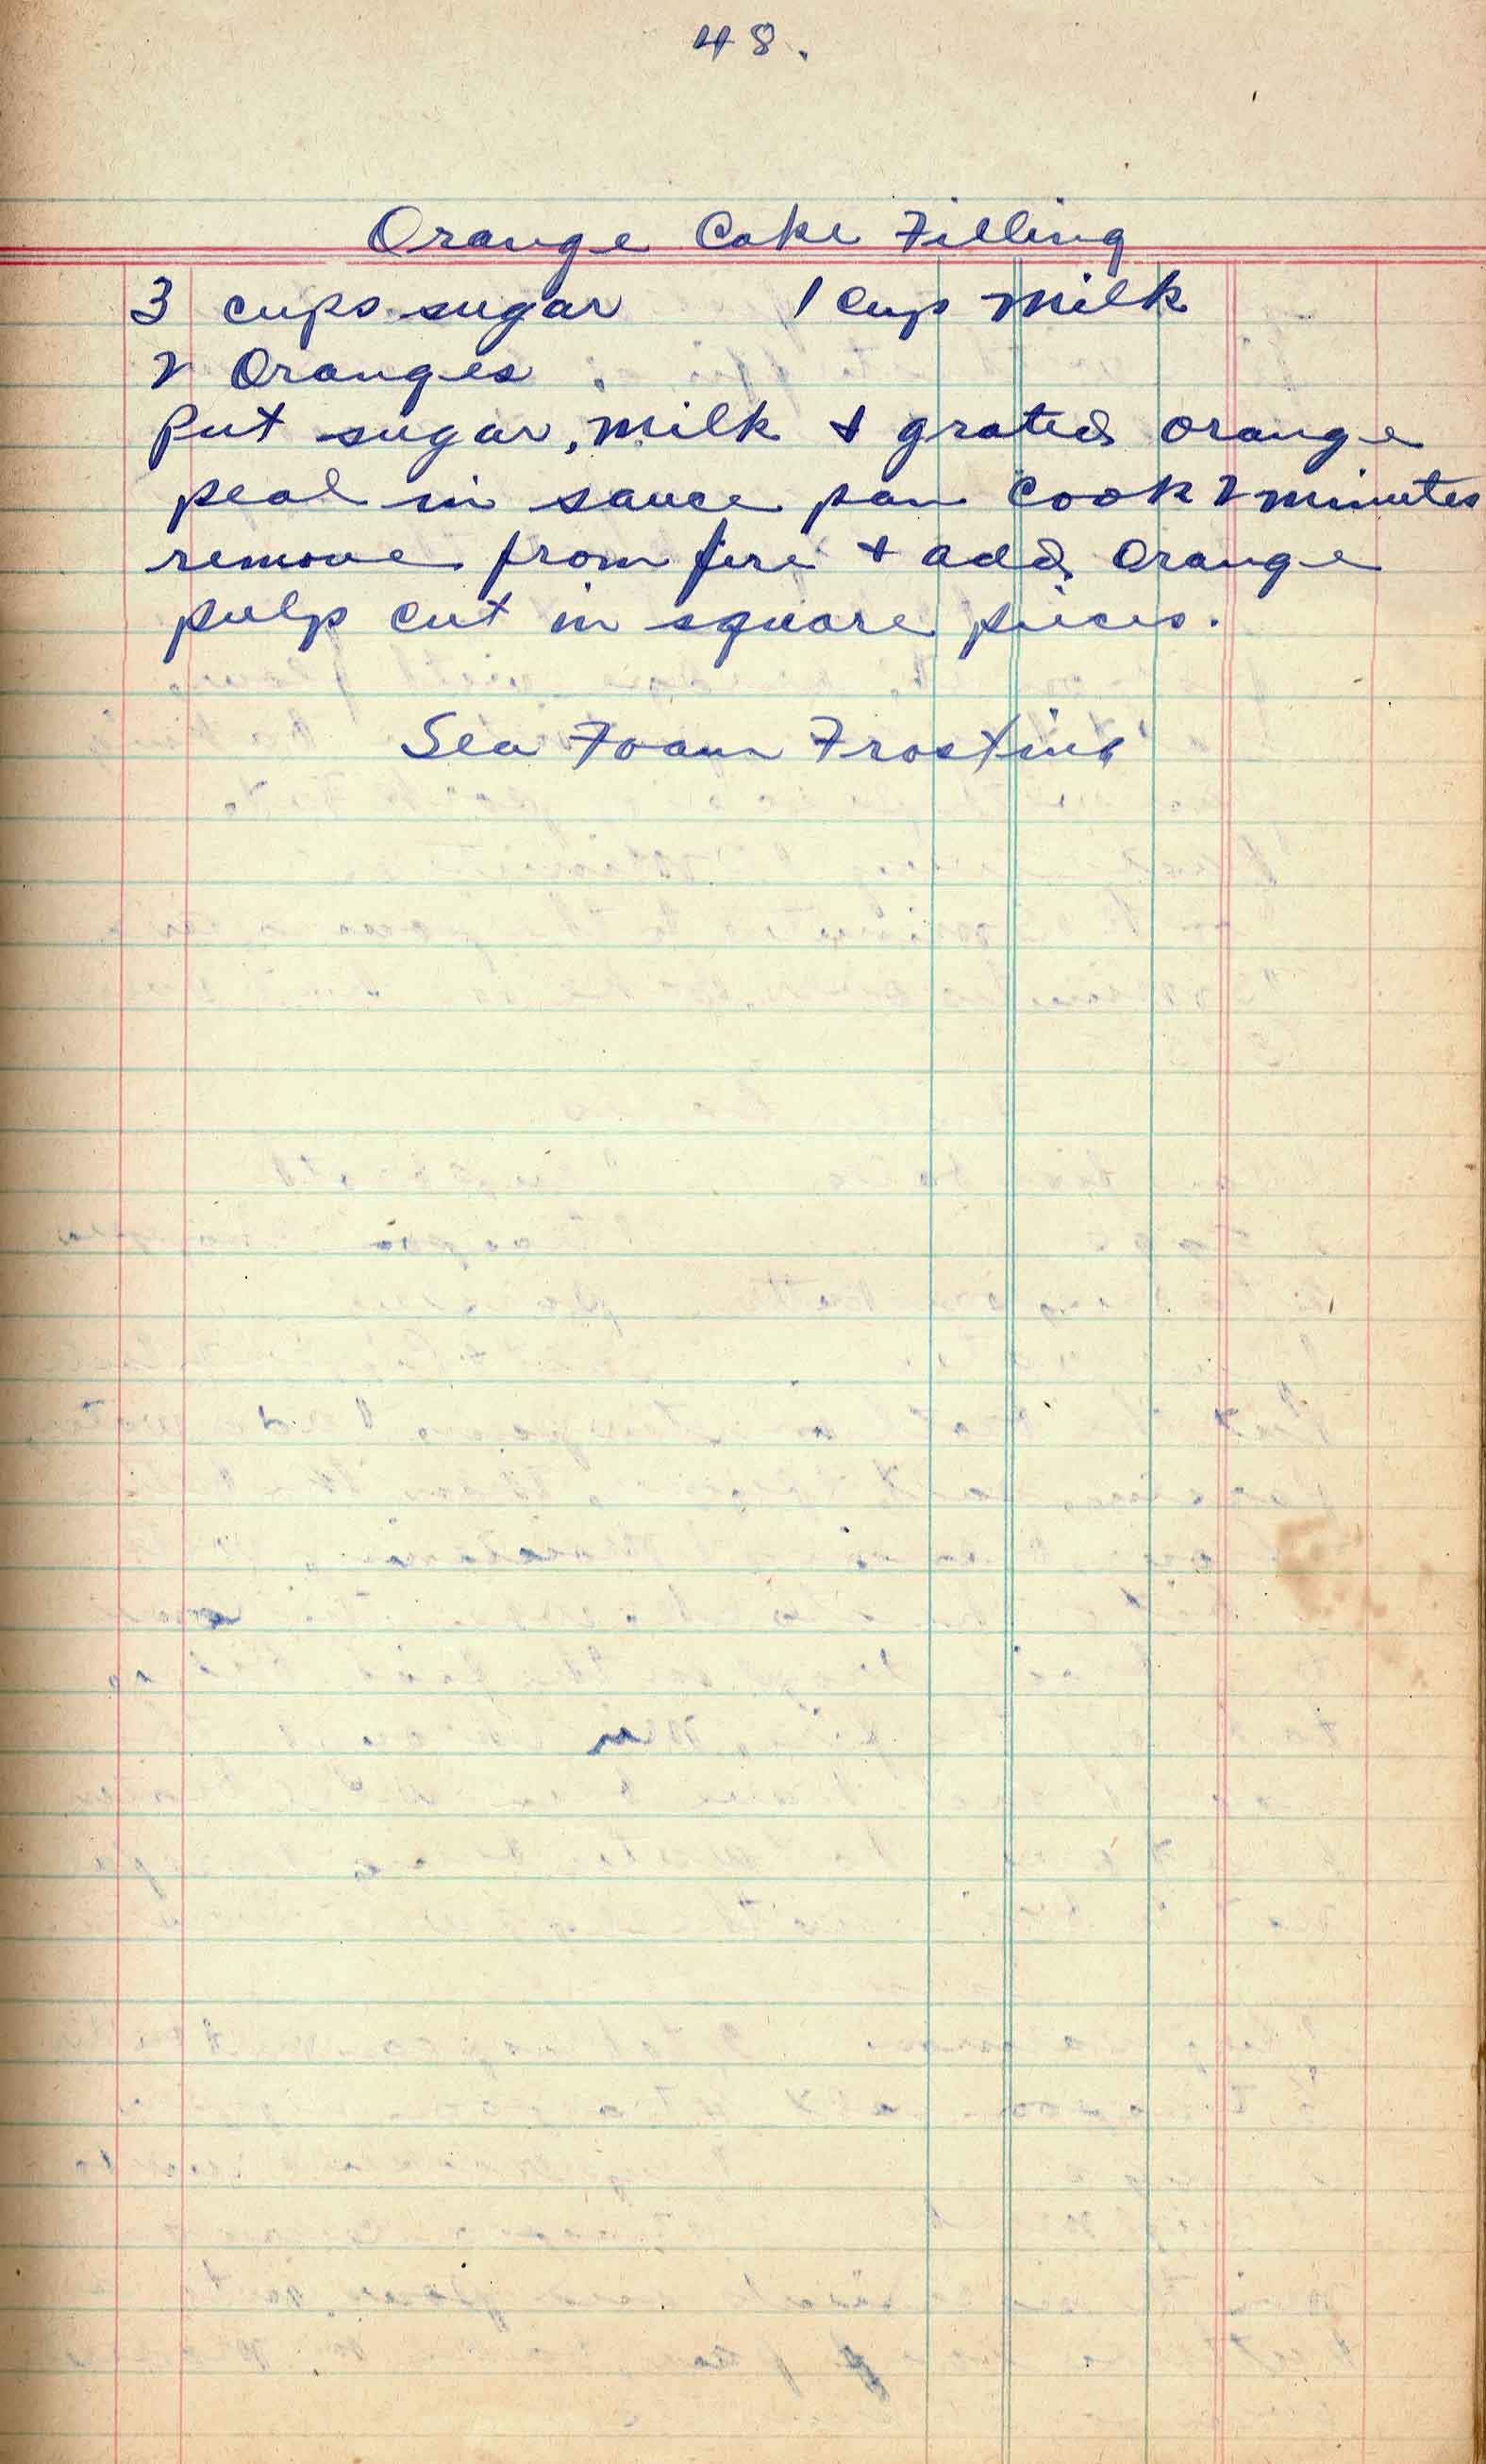 48.
Orange Cake Filling
3 cups sugar 1 cup milk
2 Oranges
Put sugar, milk + grated orange
peal in sauce pan cook 2 minutes
remove from fire + add orange
pulp cut in square pieces.
Sea Foam Frosting